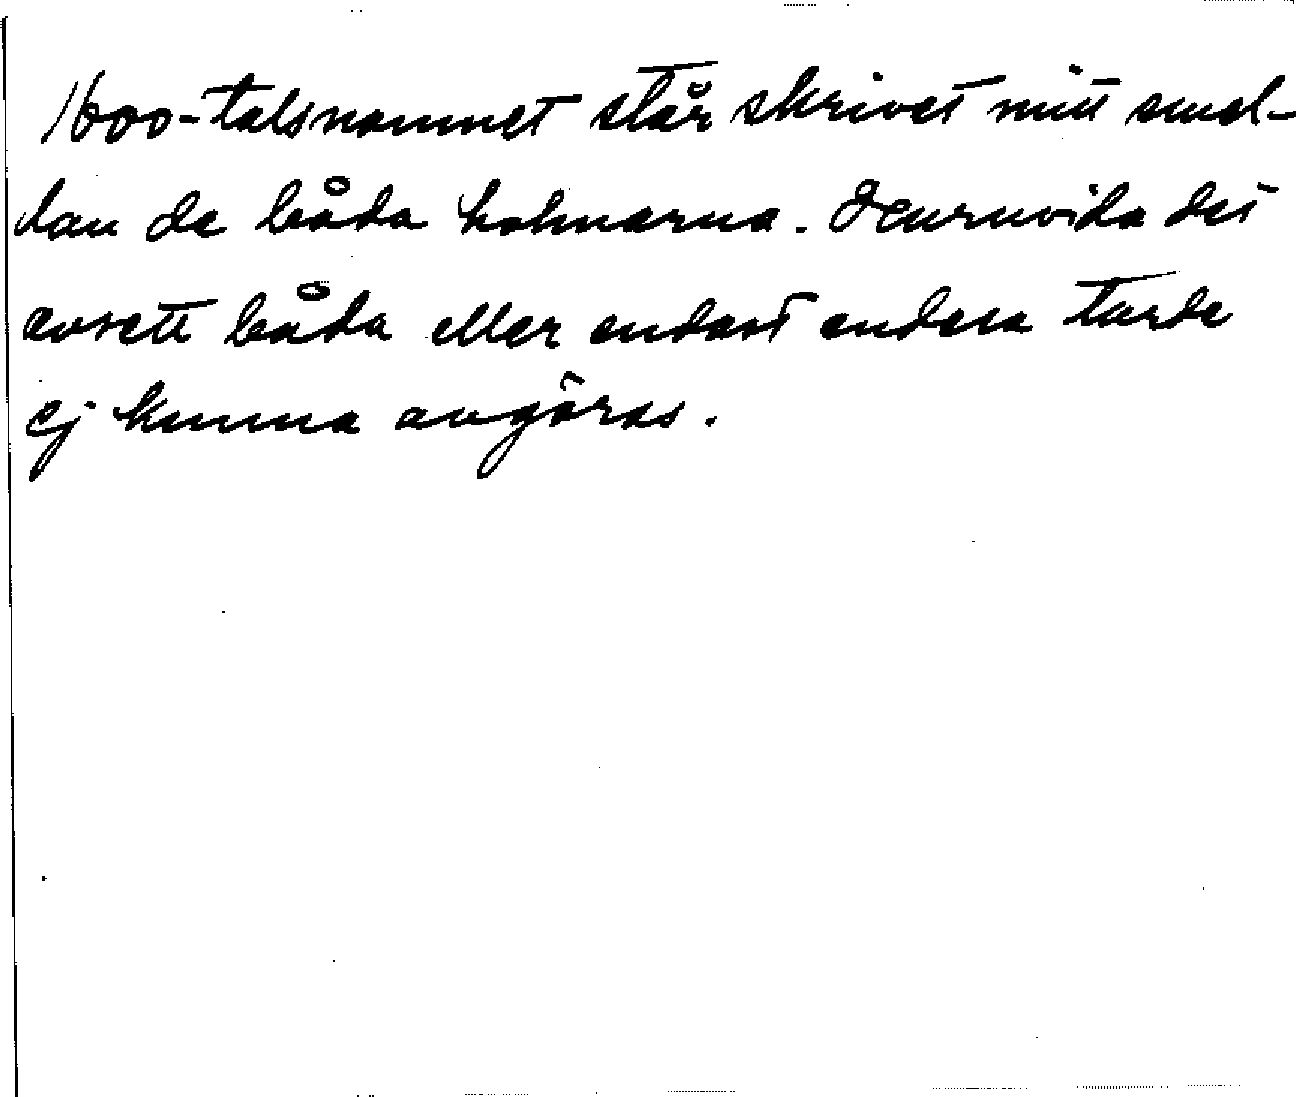 1600-talsnamnet står skrivet mitt emel-
lan de båda holmarna. Huruvida det
avsett båda eller endast endera torde
ej kunna avgöras.